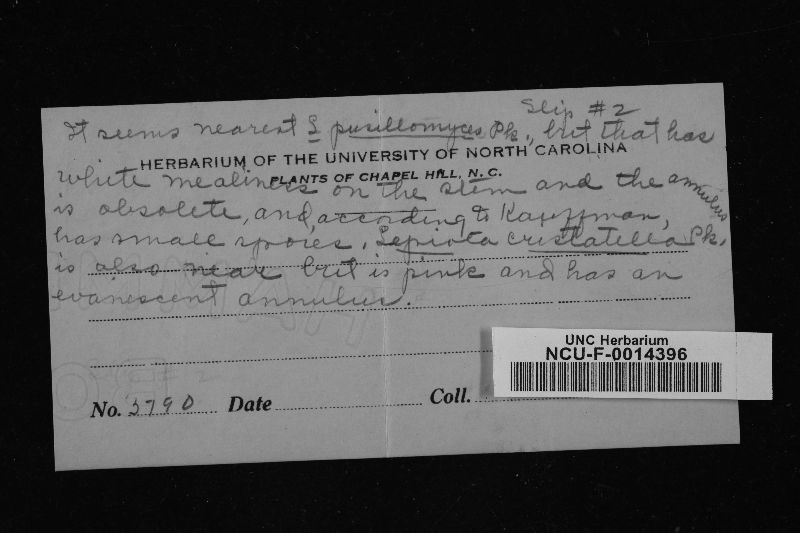 Slip #2
It seems nearest L pusillomyces Pk., but that has
HERBARIUM OF THE UNIVERSITY OF NORTH CAROLINA
white mealiness on the stem and the annulus
PLANTS OF CHAPEL HILL, N. C.
is obsolete, and, according to Kauffman,
has small spores. Lepiota cristatella Pk.
is also near but is pink and has an
evanescent annulus.
UNC Herbarium
NCU-F-0014396
No. 3790 Date Coll.